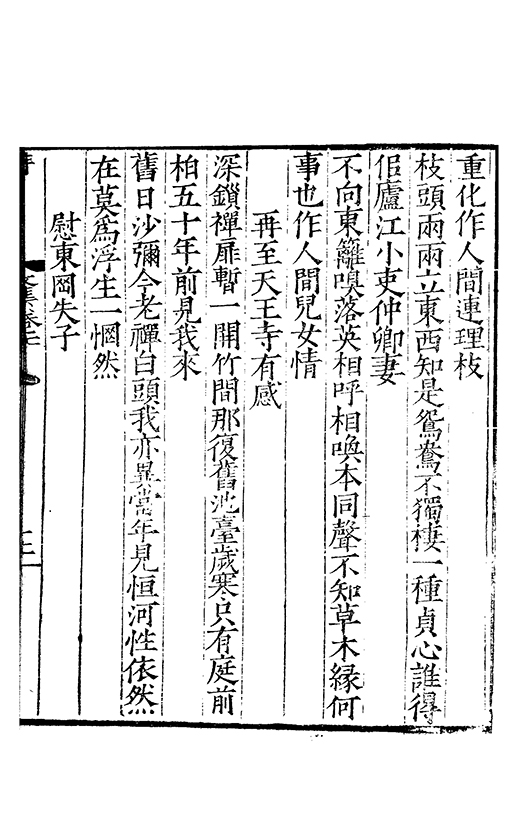 重化作人間連理枝
枝頭兩兩立東西知是鴛鴦不獨棲一種貞心誰得
侣廬江小吏仲卿妻
不向東籬嗅落英相呼相喚本同聲不知草木緣何
事也作人間兒女情
再至天王寺有感
深鎖禪扉暫一開竹間那復舊池臺歲寒只有庭前
柏五十年前見我來
舊日沙彌今老禪白頭我亦異當年見恒河性依然
在莫爲浮生一惘然
慰東岡失子